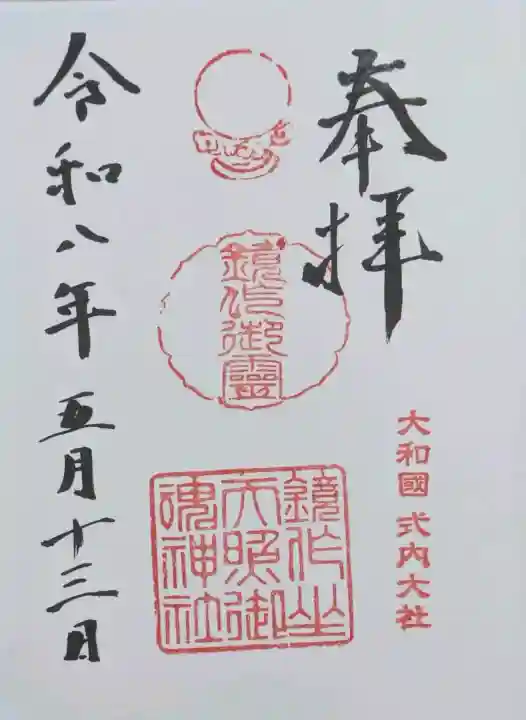 奉拝
大和國 式内大社
鏡作御靈
鏡作坐
天照御
魂神社
令和八年五月十三日